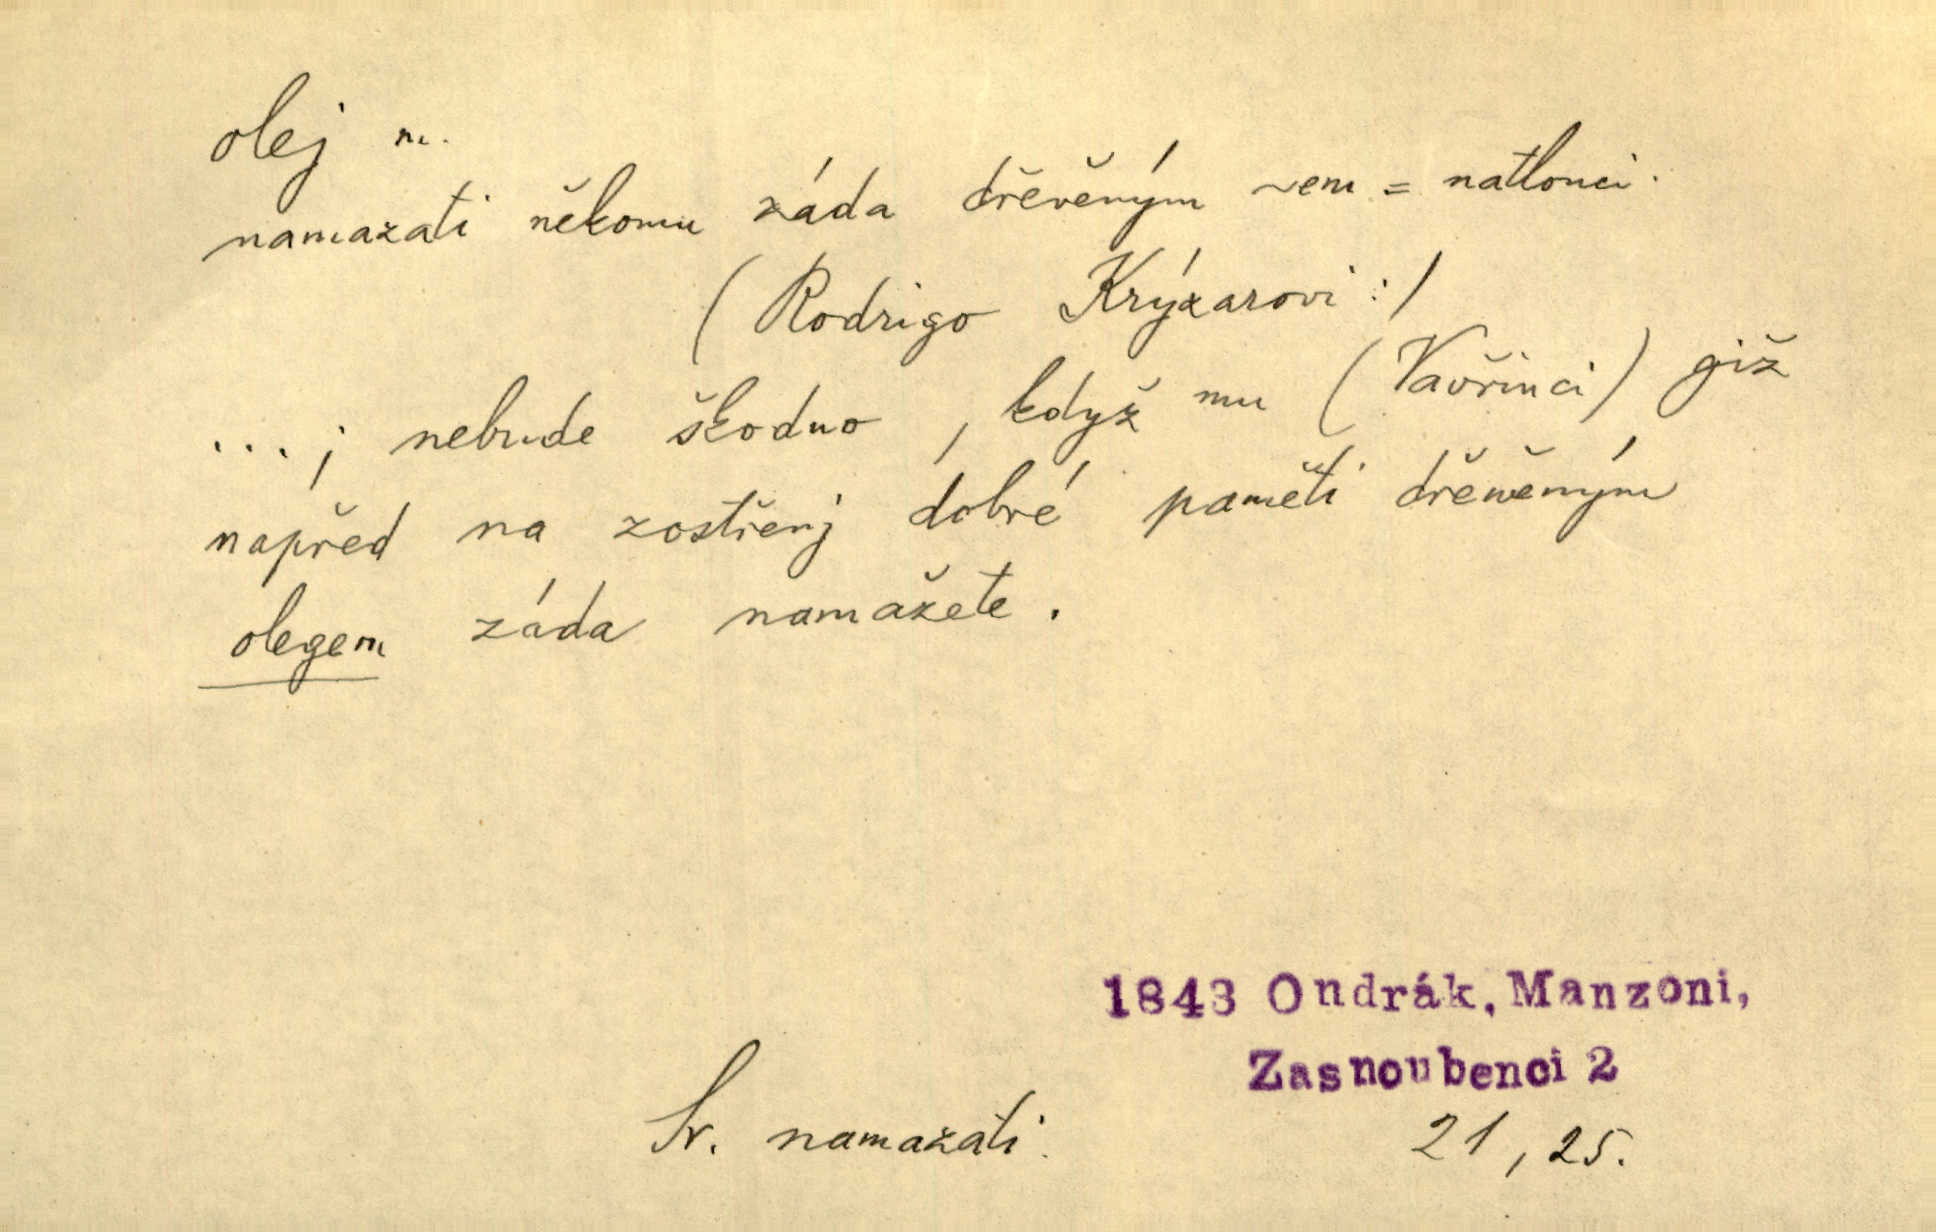 olej m.
namazati někomu záda dřevěným ~em = natlouci.
(Rodrigo Krýzarovi:)
...; nebude škodno, když mu (Vavřinci) giž
napřed na zostřenj dobré paměti dřewěným
olegem záda namažete.
1843 Ondrák, Manzoni,
Zasnoubenci 2
Sr. namazati.
21, 25.